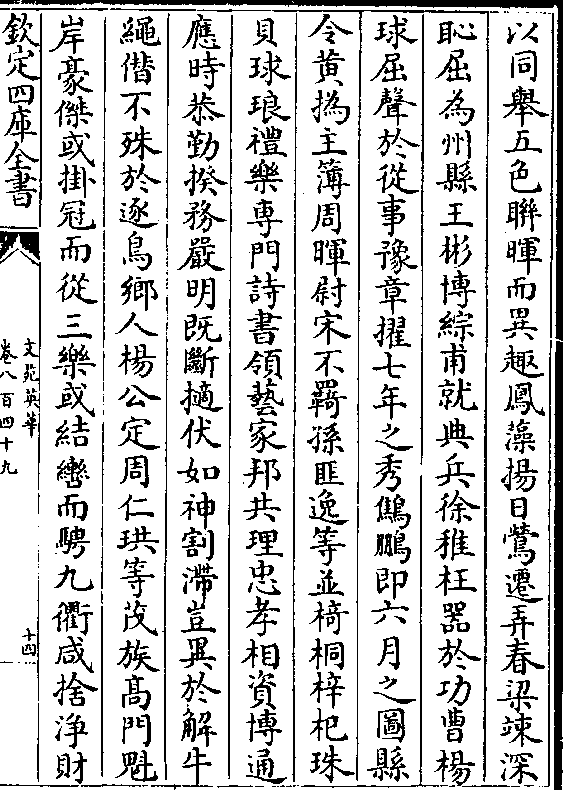 以同舉五色聨暉而異趣鳳藻揚日鶯遷弄春梁竦深
恥屈為州縣王彬博綜甫就典兵徐稚枉器於功曹楊
球屈聲於從事豫章擢七年之秀鷦鵬即六月之圖縣
令黄撝主簿周暉尉宋不羇孫匪逸等並椅桐梓杞珠
貝球琅禮樂専門詩書領藝家邦共理忠孝相資博通
應時恭勤揆務嚴明既斷擿伏如神割滯豈異於解牛
繩偕不殊於逐鳥鄉人楊公定周仁珙等茂族髙門魁
岸豪傑或掛冠而從三樂或結轡而騁九衢咸捨淨財
欽定四庫全書
文苑英華
卷八百四十九
十四